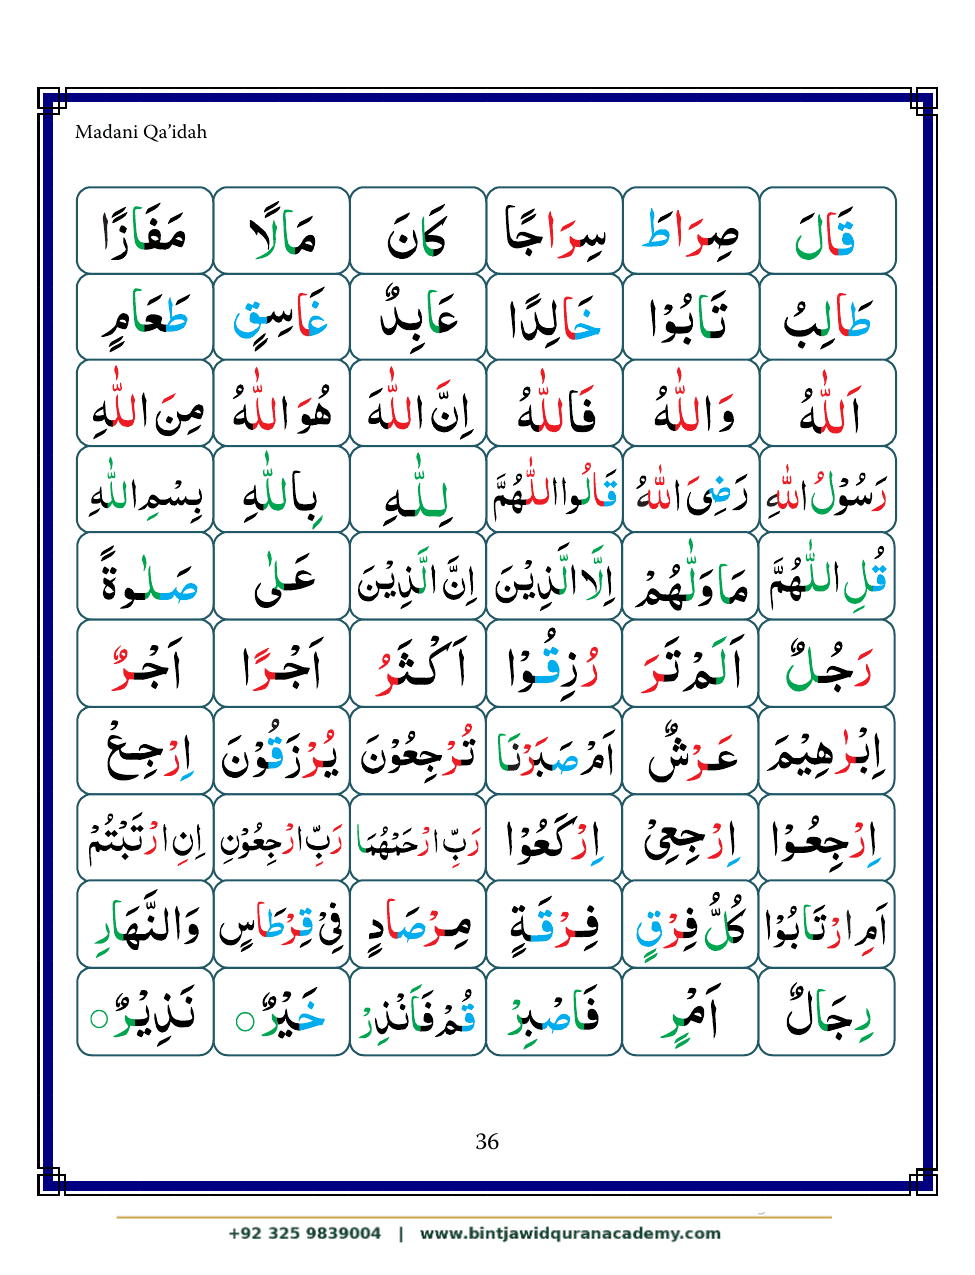 Madani Qa'idah
قَالَ صِرَاطَ سِرَاجًا كَانَ مَالًا مَفَازًا
طَالِبُ تَابُوْا خَالِدًا عَابِدٌ غَاسِقٍ طَعَامٍ
اَللّٰهُ وَاللّٰهُ فَاللّٰهُ اِنَّ اللّٰهَ هُوَ اللّٰهُ مِنَ اللّٰهِ
رَسُوْلُ اللّٰهِ رَضِىَ اللّٰهُ قَالُوا اللّٰهُمَّ لِلّٰهِ بِاللّٰهِ بِسْمِ اللّٰهِ
قُلِ اللّٰهُمَّ مَاوَلّٰهُمْ اِلَّا الَّذِيْنَ اِنَّ الَّذِيْنَ عَلٰى صَلٰوةً
رَجُلٌ اَلَمْ تَرَ رُزِقُوْا اَكْثَرُ اَجْرًا اَجْرٌ
اِبْرٰهِيْمَ عَرْشٌ اَمْ صَبَرْنَا تُرْجِعُوْنَ يُرْزَقُوْنَ اِرْجِعْ
اِرْجِعُوْا اِرْجِعِىْ اِرْكَعُوْا رَبِّ ارْحَمْهُمَا رَبِّ ارْجِعُوْنِ اِنِ ارْتَبْتُمْ
اَمِ ارْتَابُوْا كُلُّ فِرْقٍ فِرْقَةٍ مِرْصَادٍ فِىْ قِرْطَاسٍ وَالنَّهَارِ
رِجَالٌ اَمْرٍ فَاصْبِرْ قُمْ فَاَنْذِرْ خَيْرٌ ○ نَذِيْرٌ ○
36
+92 325 9839004 | www.bintjawidquranacademy.com